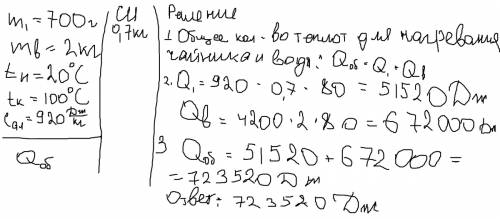 m₁ = 700г
mв = 2кг
tн = 20°C
tк = 100°C
cал = 920 Дж/кг
Qоб
СИ
0,7кг
Решение
1 Общее кол-во теплот для нагревания
чайника и воды: Qоб = Q₁ + Qв
2. Q₁ = 920 · 0,7 · 80 = 51520 Дж
Qв = 4200 · 2 · 80 = 672000 Дж
3 Qоб = 51520 + 672000 =
= 723520 Дж
Ответ: 723520 Дж